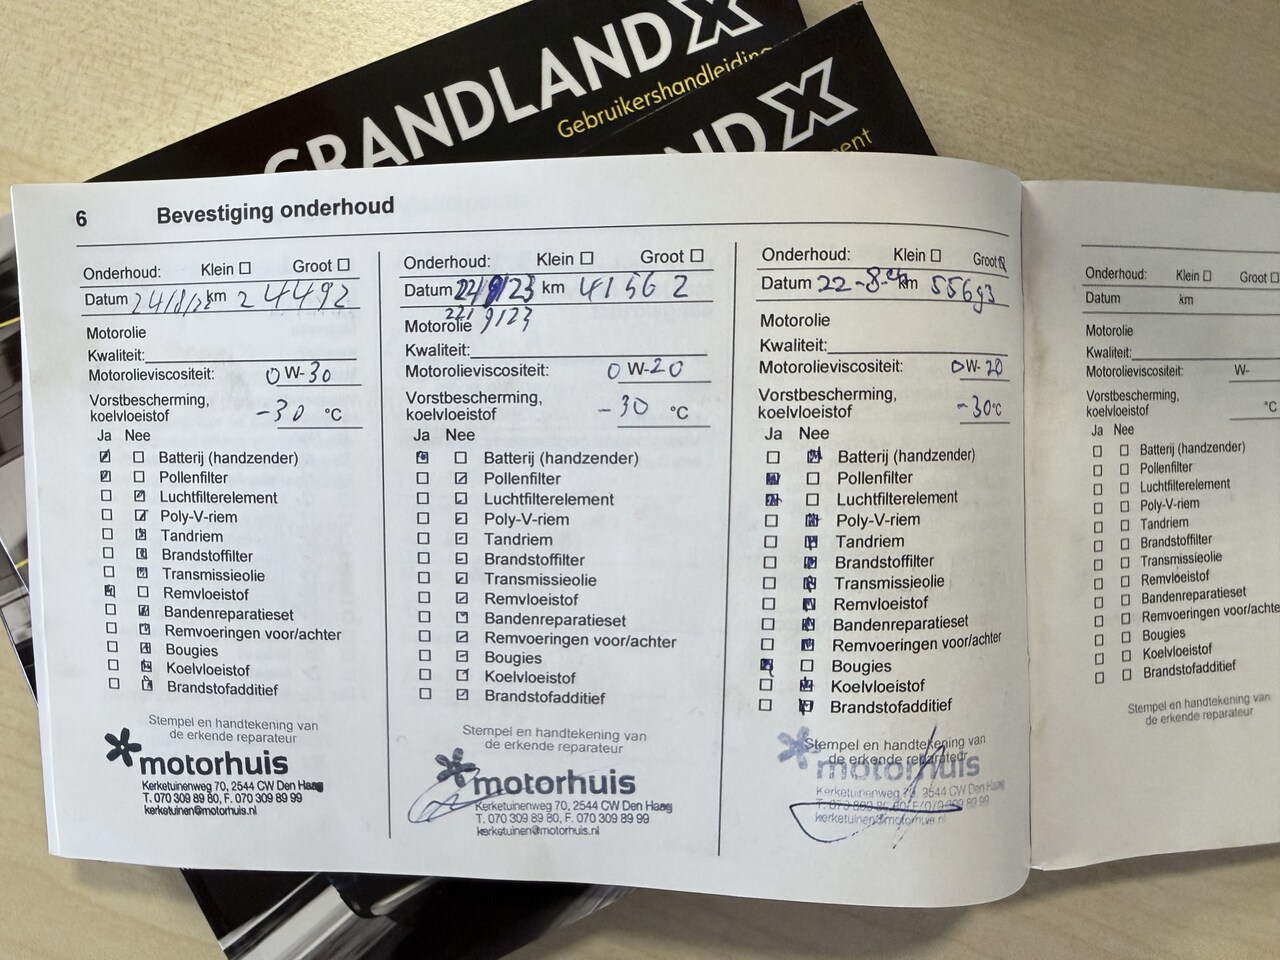 GRANDLAND X
Gebruikershandleiding
ND X
ment
6 Bevestiging onderhoud
Onderhoud: Klein Groot
Datum km 24492
Motorolie
Kwaliteit:
Motorolieviscositeit: 0W-30
Vorstbescherming,
koelvloeistof -30 °C
Ja Nee
Batterij (handzender)
Pollenfilter
Luchtfilterelement
Poly-V-riem
Tandriem
Brandstoffilter
Transmissieolie
Remvloeistof
Bandenreparatieset
Remvoeringen voor/achter
Bougies
Koelvloeistof
Brandstofadditief
Stempel en handtekening van
de erkende reparateur
motorhuis
Kerketuinenweg 70, 2544 CW Den Haag
T. 070 309 89 80, F. 070 309 89 99
kerketuinen@motorhuis.nl
Onderhoud: Klein Groot
Datum 22/9/23 km 41562
Motorolie 22/9/23
Kwaliteit:
Motorolieviscositeit: 0W-20
Vorstbescherming,
koelvloeistof -30 °C
Ja Nee
Batterij (handzender)
Pollenfilter
Luchtfilterelement
Poly-V-riem
Tandriem
Brandstoffilter
Transmissieolie
Remvloeistof
Bandenreparatieset
Remvoeringen voor/achter
Bougies
Koelvloeistof
Brandstofadditief
Stempel en handtekening van
de erkende reparateur
motorhuis
Kerketuinenweg 70, 2544 CW Den Haag
T. 070 309 89 80, F. 070 309 89 99
kerketuinen@motorhuis.nl
Onderhoud: Klein Groot
Datum 22-8-24 km 55693
Motorolie
Kwaliteit:
Motorolieviscositeit: 0W-20
Vorstbescherming,
koelvloeistof -30°C
Ja Nee
Batterij (handzender)
Pollenfilter
Luchtfilterelement
Poly-V-riem
Tandriem
Brandstoffilter
Transmissieolie
Remvloeistof
Bandenreparatieset
Remvoeringen voor/achter
Bougies
Koelvloeistof
Brandstofadditief
Stempel en handtekening van
de erkende reparateur
motorhuis
Kerketuinenweg 70, 2544 CW Den Haag
T. 070 309 89 80, F. 070 309 89 99
kerketuinen@motorhuis.nl
Onderhoud: Klein Groot
Datum km
Motorolie
Kwaliteit:
Motorolieviscositeit: W-
Vorstbescherming,
koelvloeistof °C
Ja Nee
Batterij (handzender)
Pollenfilter
Luchtfilterelement
Poly-V-riem
Tandriem
Brandstoffilter
Transmissieolie
Remvloeistof
Bandenreparatieset
Remvoeringen voor/achte
Bougies
Koelvloeistof
Brandstofadditief
Stempel en handtekening van
de erkende reparateur